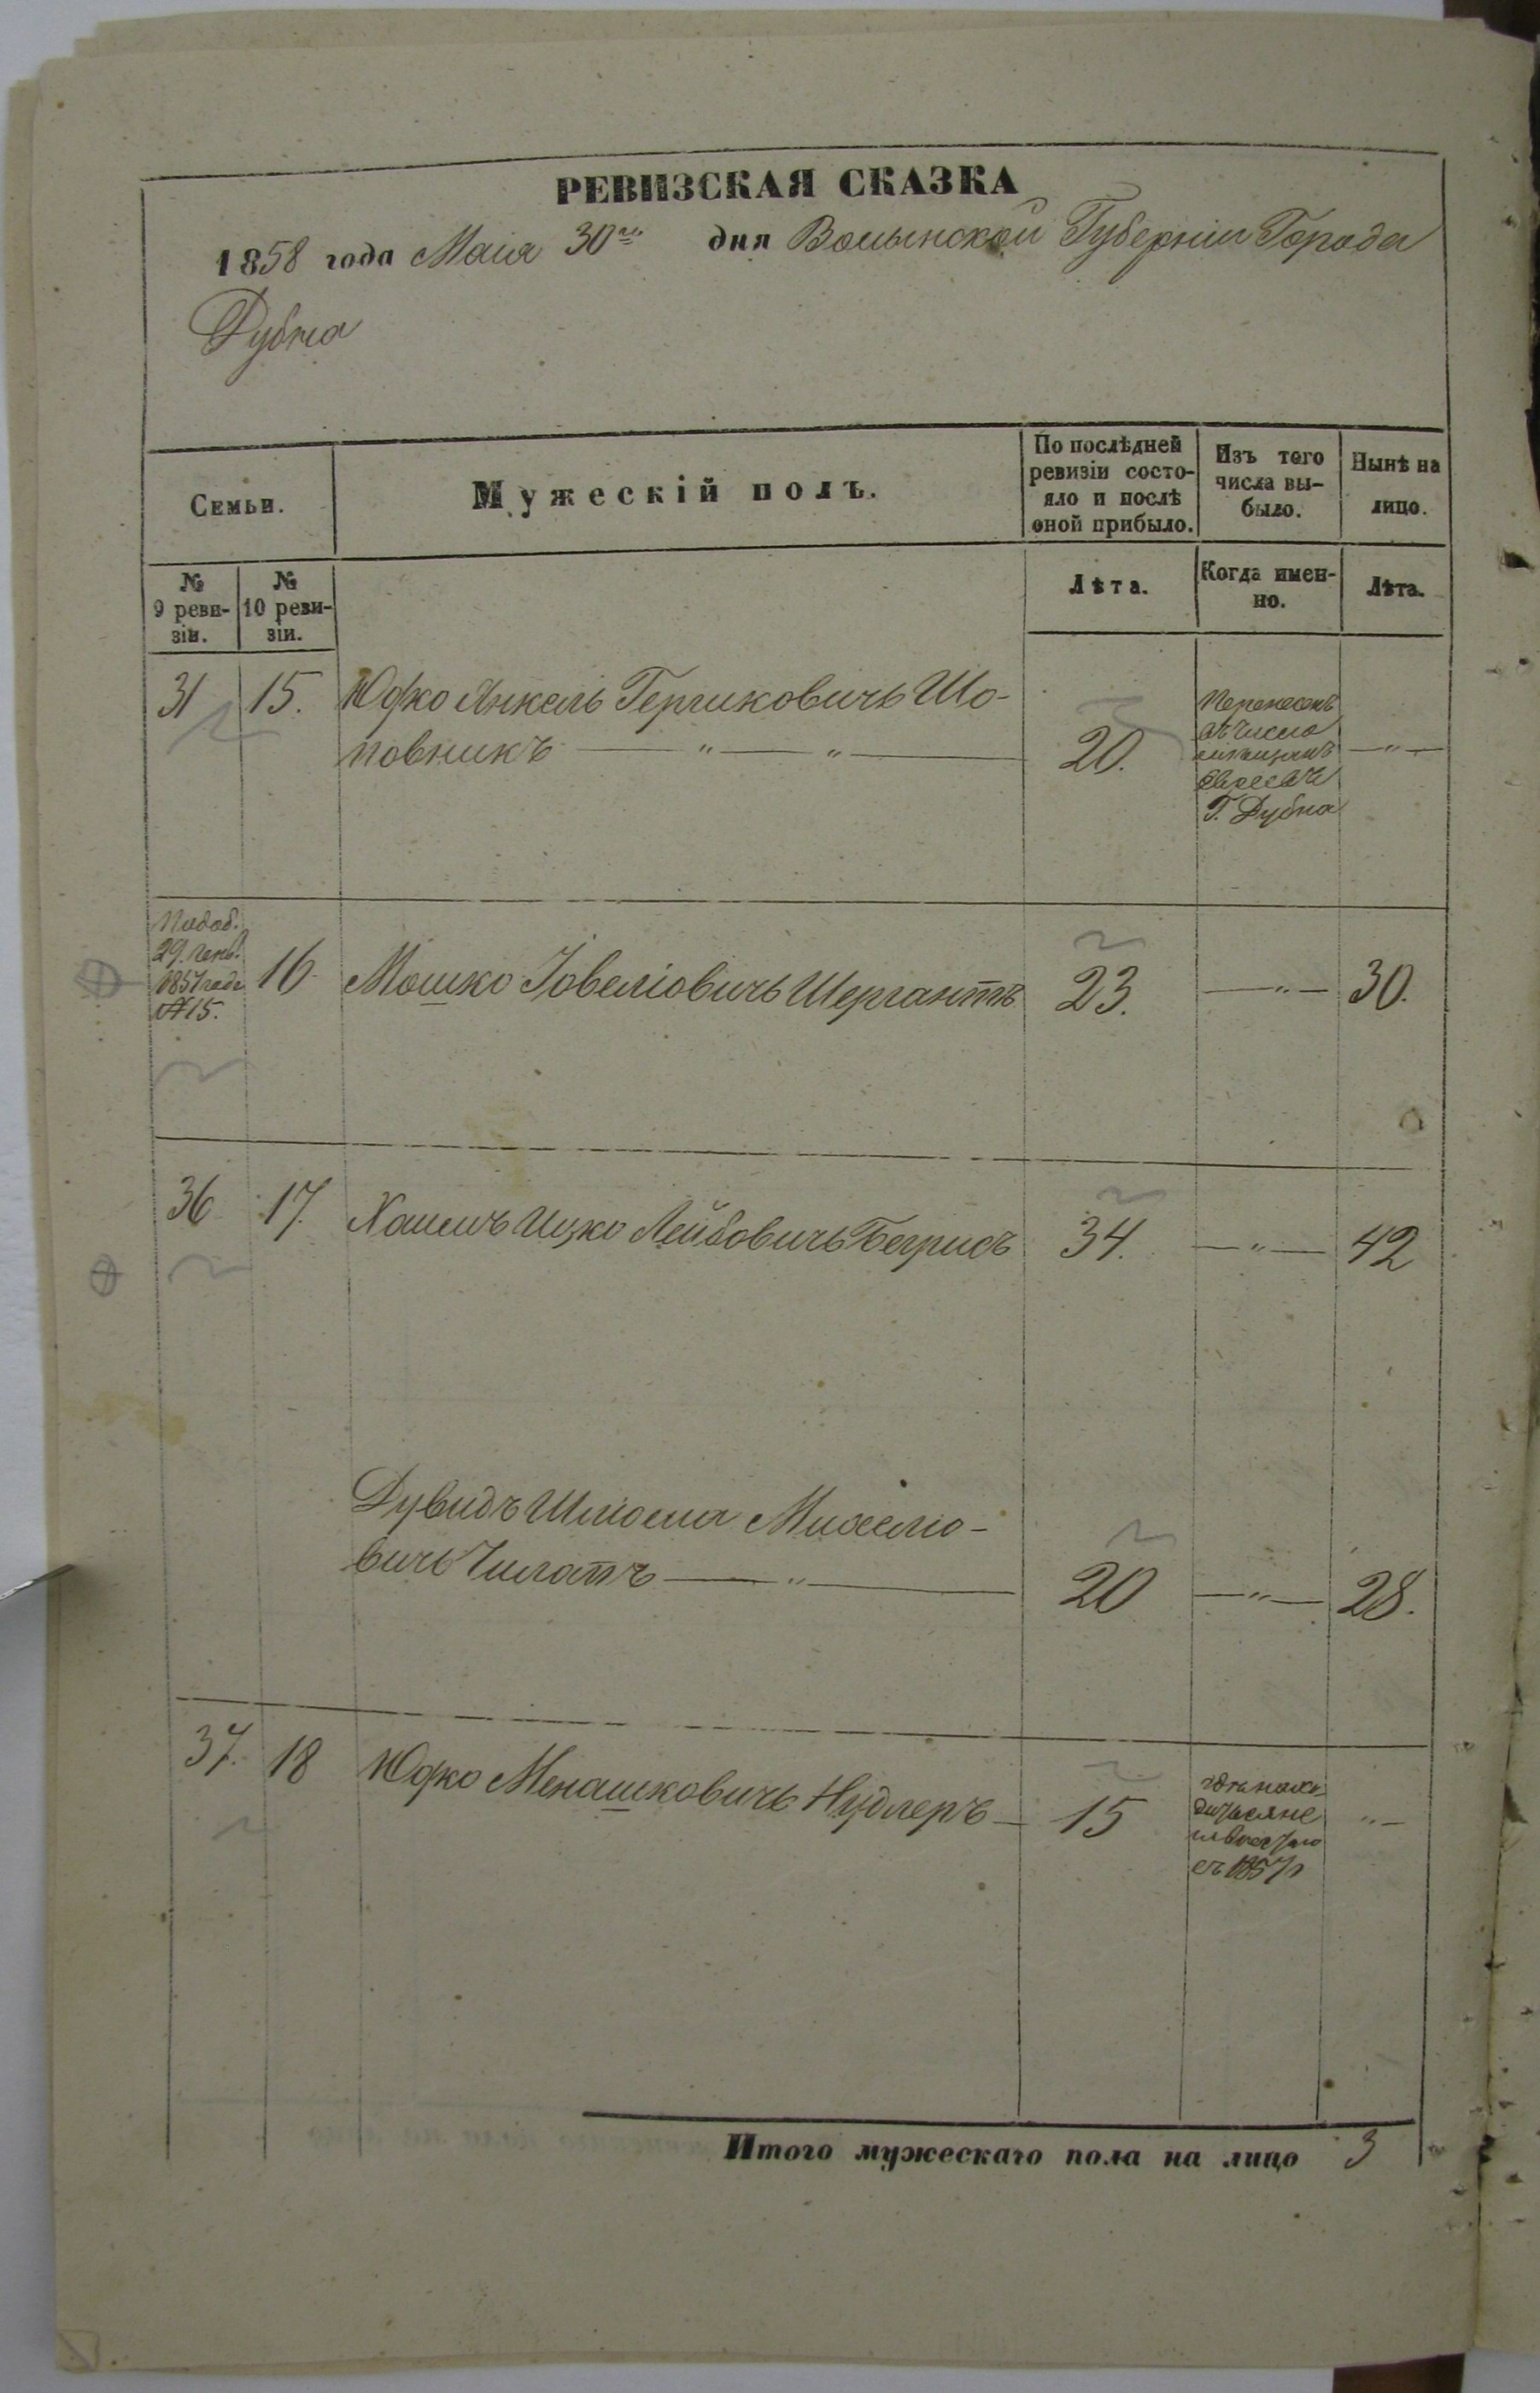 РЕВИЗСКАЯ СКАЗКА
1858 года Маія 30го дня Волынской Губерніи Города
Дубна
Семьи.
Мужескій полъ.
По послѣдней
ревизіи состо-
яло и послѣ
оной прибыло.
Изъ того
числа вы-
было.
Нынѣ на
лицо.
№
9 реви-
зіи.
№
10 реви-
зіи.
Лѣта.
Когда имен-
но.
Лѣта.
31 15. Юфко Янкель Гершковичъ Шо-
повникъ — " — " — 20. — " —
Перенесенъ
въ число
мѣщанъ
евреевъ
Г. Дубна
1857 года
№ 15.
16 Мошко Іовеліовичъ Шергантъ 23. — " — 30.
36 17. Хаимъ Ицко Лейбовичъ Бегрисъ 34. — " — 42
Дувидъ Шліома Михеліо-
вичъ Чилатъ — " — 20 — " — 28.
37. 18 Юфко Менашковичъ Нудлеръ — 15 " —
съ 1857 г
Итого мужескаго пола на лицо 3